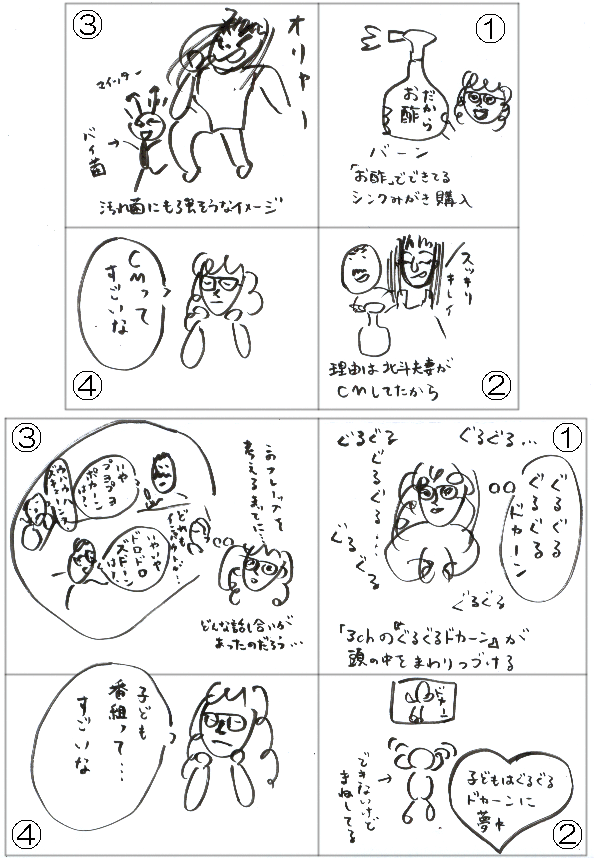 ①
だから
お酢
バーン
「お酢」でできてる
シンクみがき購入
②
スッキリ
キレイ
理由は北斗夫妻が
CMしてたから
③
オリャー
マイッター
バイ菌
汚れ菌にも強そうなイメージ
④
CMって
すごいな
①
ぐるぐる
ぐるぐる…
ぐるぐる…
ぐるぐる
ぐるぐる
ぐるぐる
ぐるぐる
ドカーン
「3chの『ぐるぐるドカーン』が
頭の中をまわりつづける
②
ドカーン
できないけど
まねしてる
子どもはぐるぐる
ドカーンに
夢中
③
このフレーズを
考えるまでに…
いや
プヨプヨ
ポカーン
は
いやいや
ドロドロ
ズドーン
は
どんな話し合いが
あったのだろう…
④
子ども
番組って…
すごいな